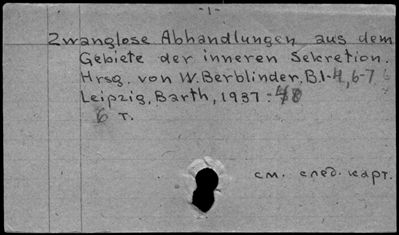 -1-
Zwanglose Abhandlungen aus dem
Gebiete der inneren Sekretion.
Hrsg. von W. Berblinder. B.1-4, 6-7
Leipzig, Barth, 1937-40
6 т.
см. след. карт.